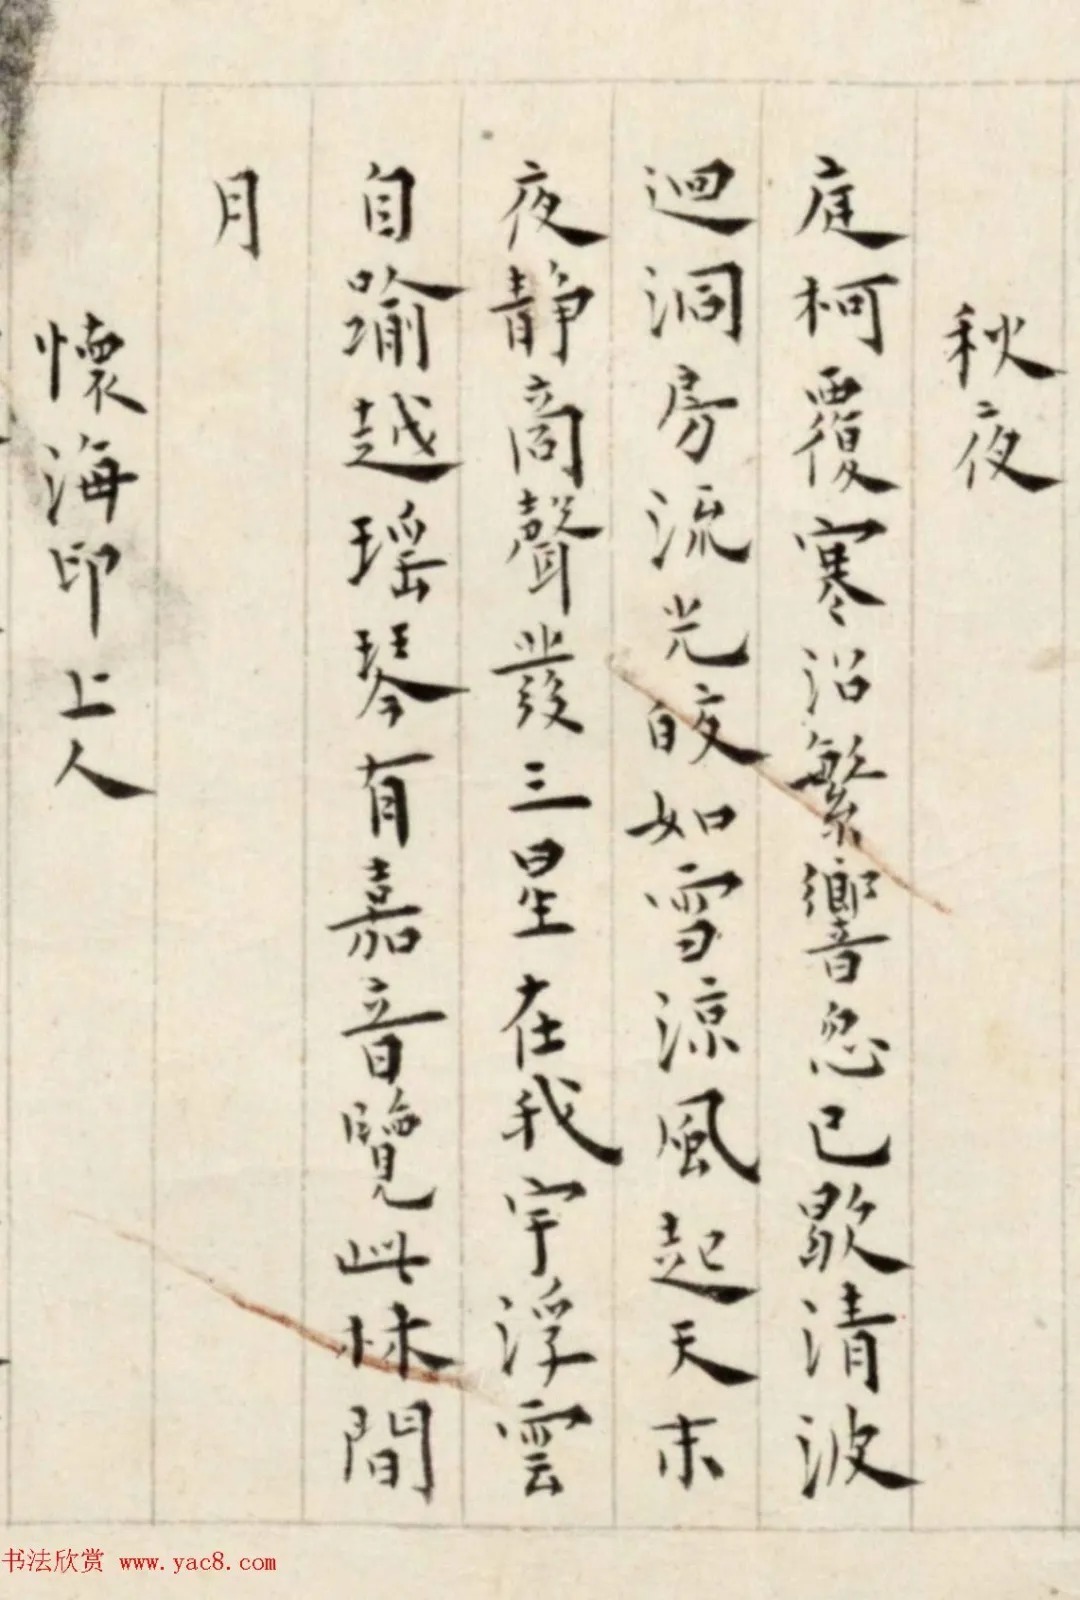 秋夜
庭柯覆寒沼繁響忽已歇清波
迴洞房流光皎如雪涼風起天末
夜靜商聲發三星在我宇浮雲
自踰越瑶琴有嘉音覽此林間
月
懷海印上人
书法欣赏 www.yac8.com